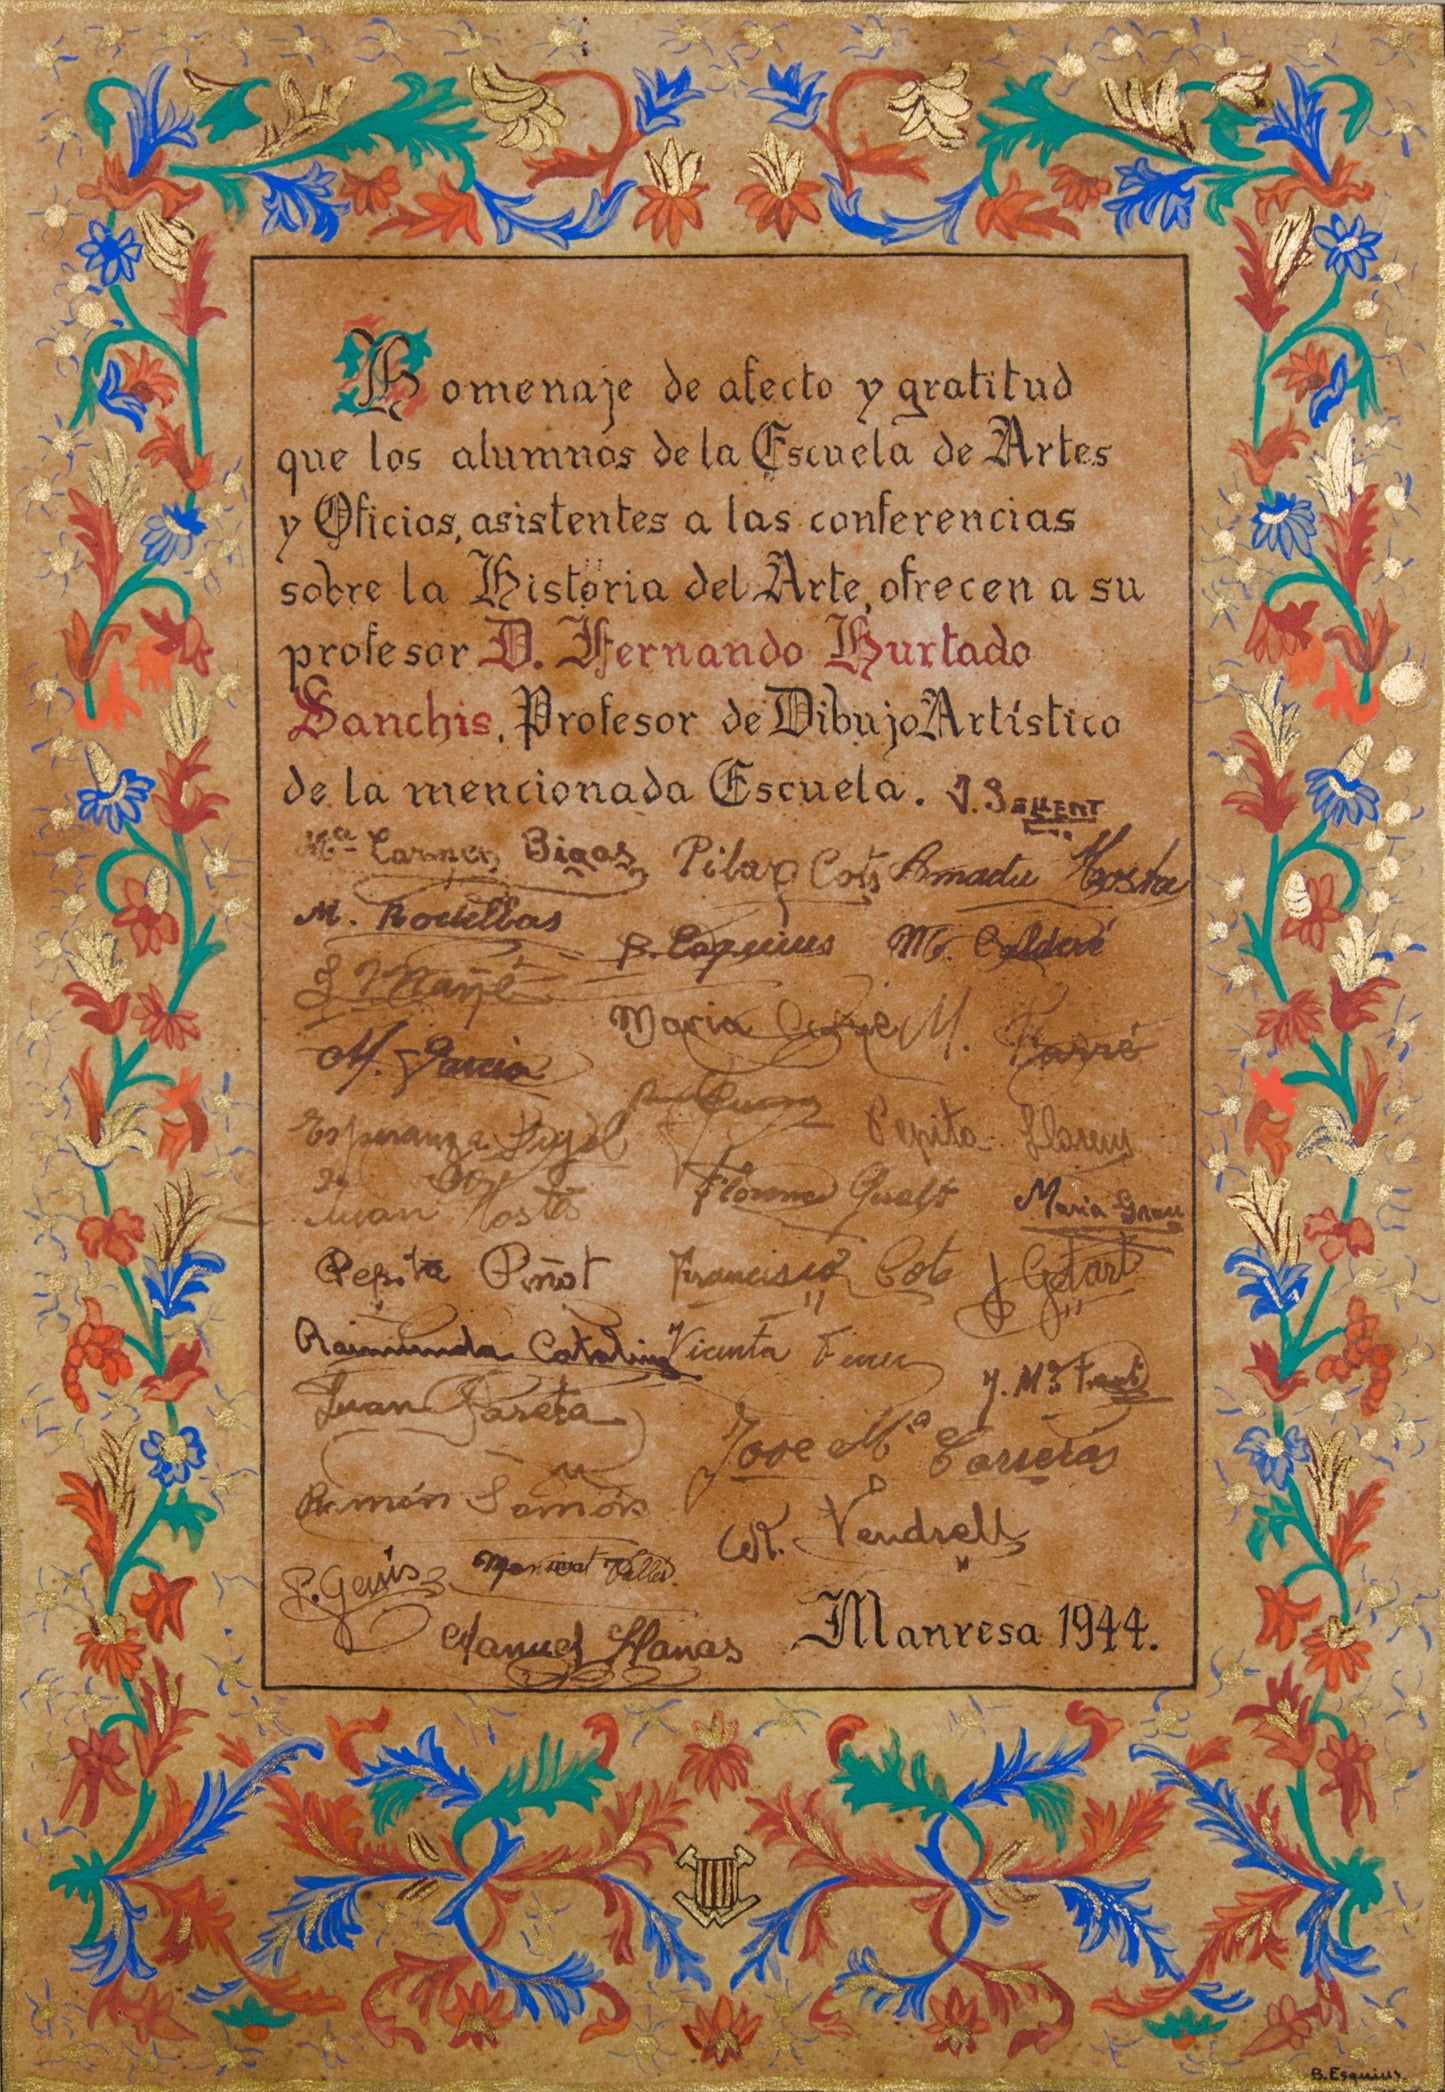 Homenaje de afecto y gratitud
que los alumnos de la Escuela de Artes
y Oficios, asistentes a las conferencias
sobre la Historia del Arte, ofrecen a su
profesor D. Fernando Hurtado
Sanchis, Profesor de Dibujo Artístico
de la mencionada Escuela.
Mª Carmen Bigas Pilar Cots Amadeu
M. Rodelbas B. Esquius M. Calderé
J Mañé
Maria M. Farré
M. Garcia
Esperanza Pujol Pepita Llorens
Juan Florenci Gualt Maria Grau
Pepita Piñot Francisco Cots J Gotart
Raimunda Catalina Vicenta Ferrer
J. Mª Font
Juan Pareta
Jose Mª Carreras
Ramón Samóis
Vendrell
P. Genís Montserrat Vallés
Manuel Planas
Manresa 1944.
B. Esquius